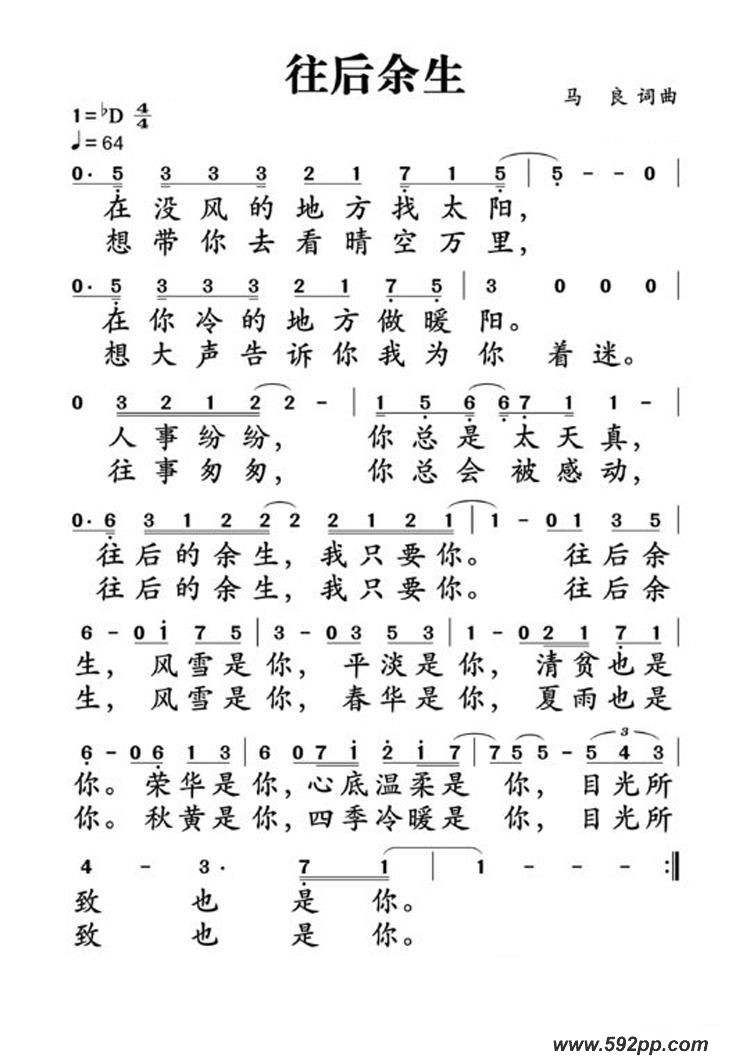 往后余生
马 良 词曲
1=♭D 4/4
♩=64
0· 5 3 3 3 2 1 7 1 5 | 5 - - 0 |
在没风的地方找太阳,
想带你去看晴空万里,
0· 5 3 3 3 2 1 7 5 | 3 0 0 0 |
在你冷的地方做暖阳。
想大声告诉你我为你着迷。
0 3 2 1 2 2 - | 1 5 6 6 7 1 1 - |
人事纷纷, 你总是太天真,
往事匆匆, 你总会被感动,
0· 6 3 1 2 2 2 2 1 2 1 | 1 - 0 1 3 5 |
往后的余生,我只要你。 往后余
往后的余生,我只要你。 往后余
6 - 0 i 7 5 | 3 - 0 3 5 3 | 1 - 0 2 1 7 1 |
生, 风雪是你, 平淡是你, 清贫也是
生, 风雪是你, 春华是你, 夏雨也是
6 - 0 6 1 3 | 6 0 0 7 i 2 i 7 | 7 5 5 - 5 4 3 |
你。荣华是你,心底温柔是 你, 目光所
你。秋黄是你,四季冷暖是 你, 目光所
4 - 3· 7 1 | 1 - - - :||
致 也 是 你。
致 也 是 你。
www.592pp.com